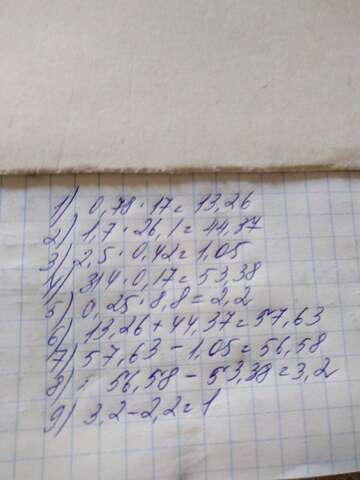 1) 0,78 · 17 = 13,26
2) 1,7 · 26,1 = 44,37
3) 2,5 · 0,42 = 1,05
4) 314 · 0,17 = 53,38
5) 0,25 · 8,8 = 2,2
6) 13,26 + 44,37 = 57,63
7) 57,63 - 1,05 = 56,58
8) : 56,58 - 53,38 = 3,2
9) 3,2 - 2,2 = 1